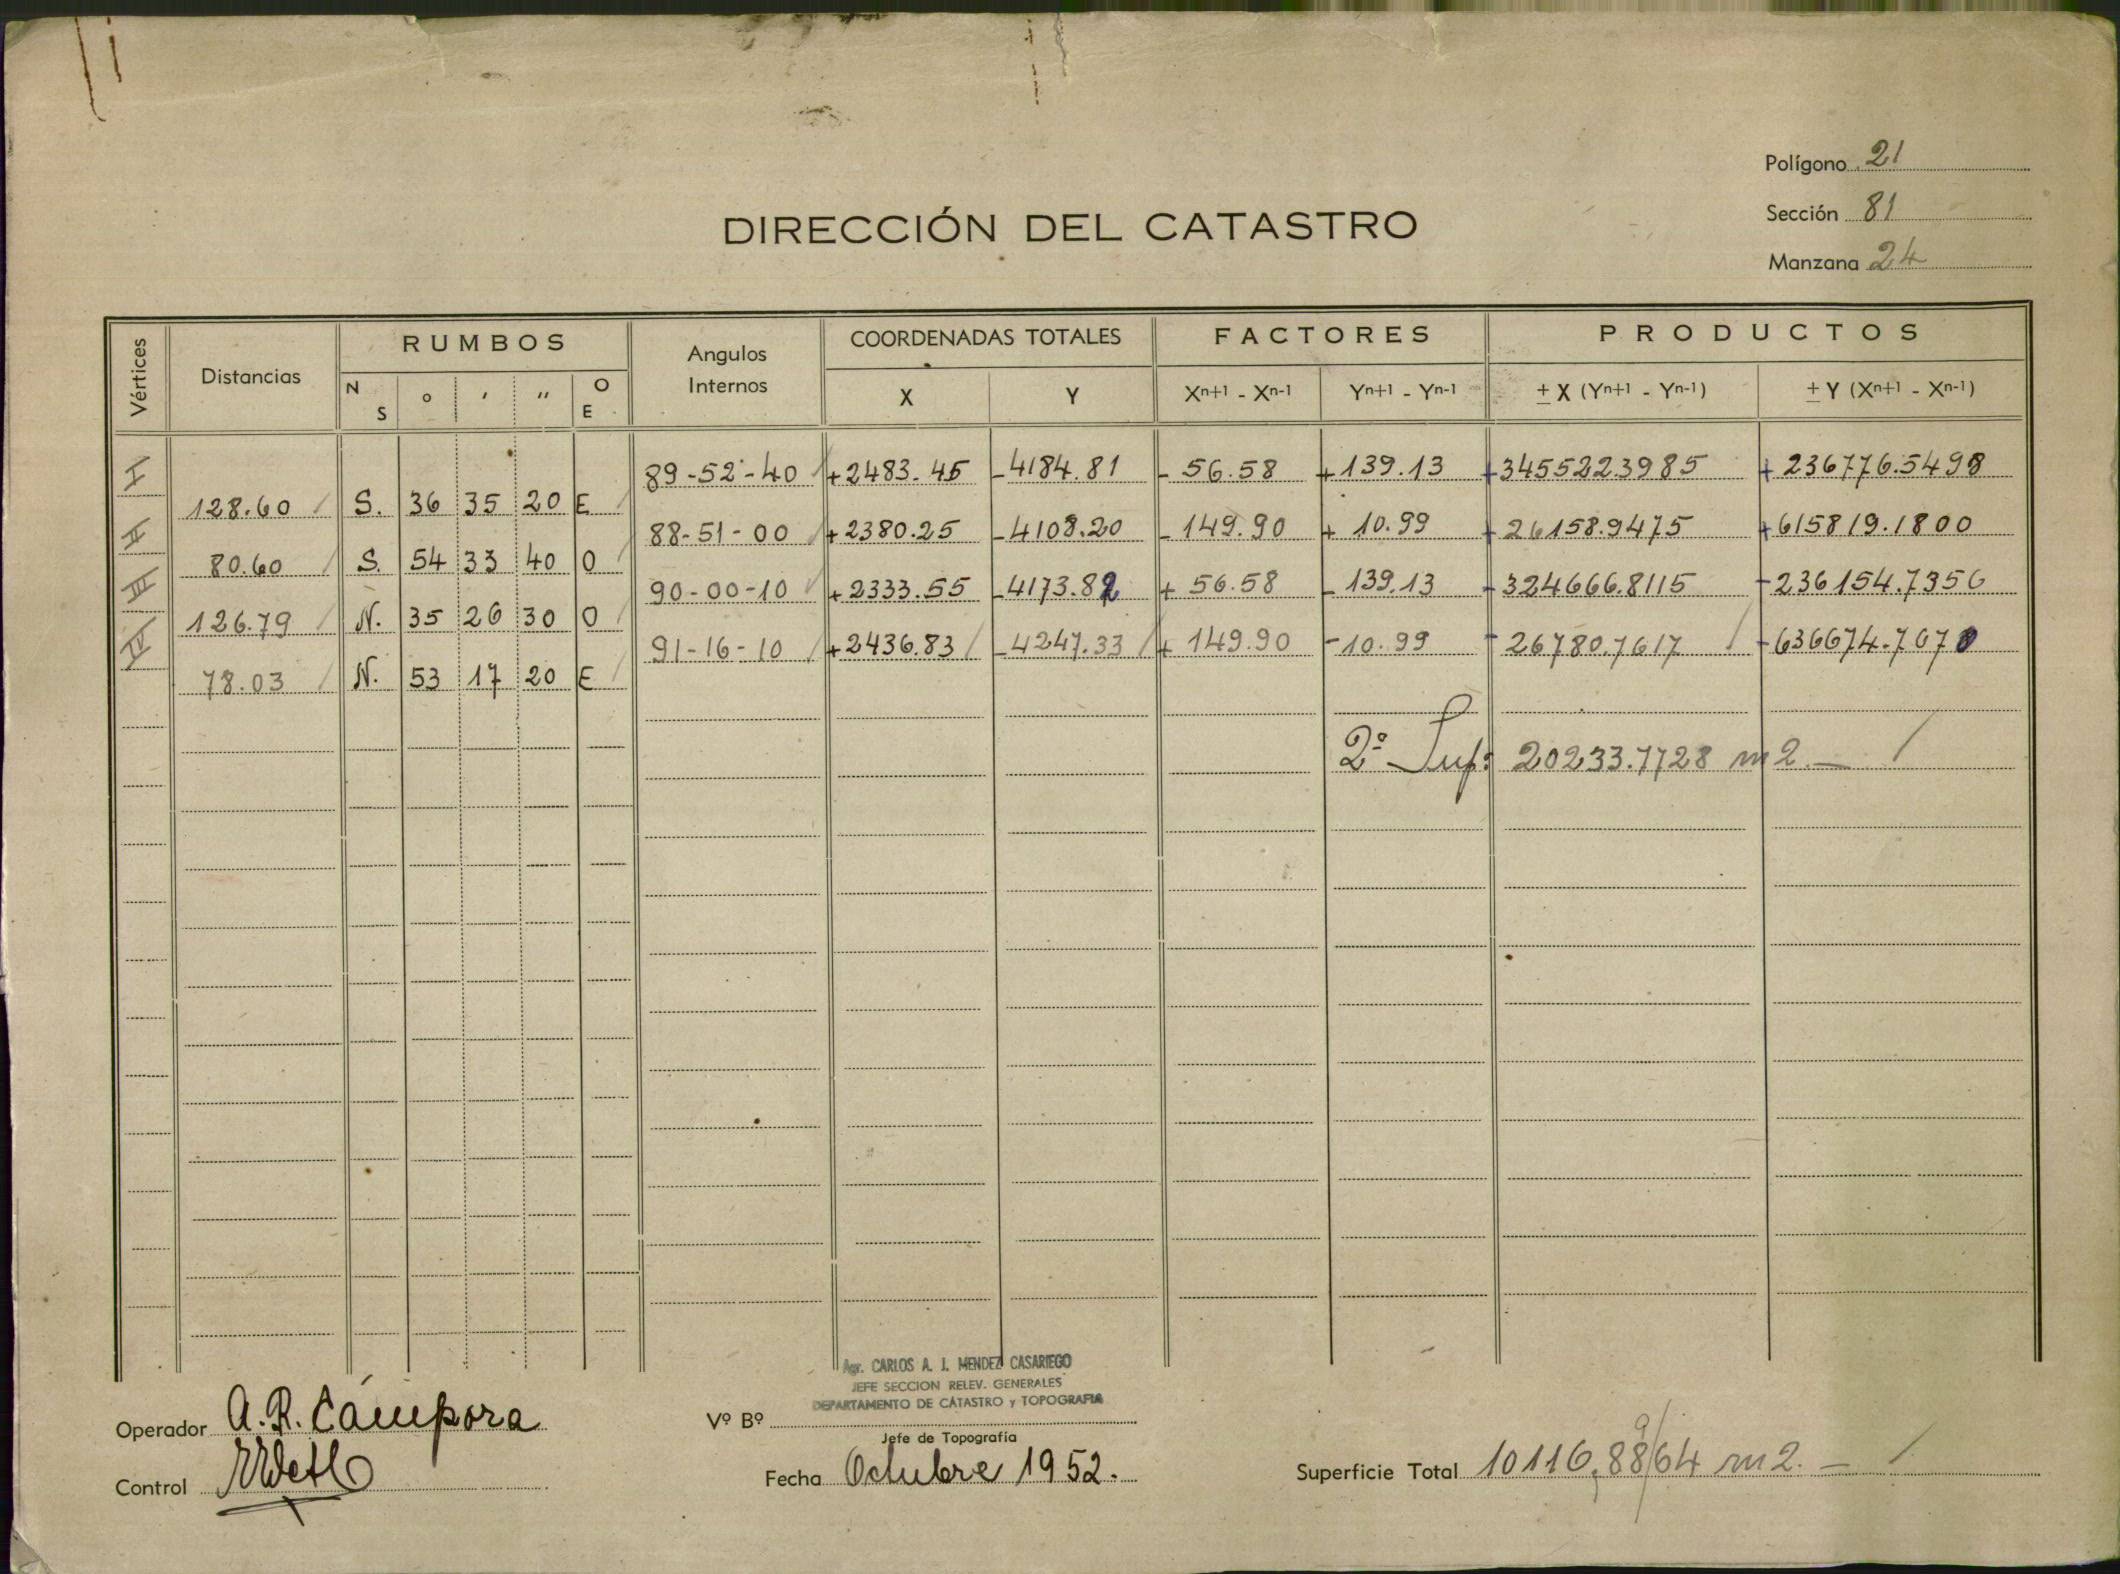 Polígono 21
Sección 81
Manzana 24
DIRECCIÓN DEL CATASTRO
Vértices Distancias RUMBOS Angulos Internos COORDENADAS TOTALES FACTORES PRODUCTOS
N S ° ' " O E X Y Xn+1 - Xn-1 Yn+1 - Yn-1 ± X (Yn+1 - Yn-1) ± Y (Xn+1 - Xn-1)
I 89-52-40 +2483.45 -4184.81 - 56.58 +139.13 +345522.3985 +236776.5498
128.60 S. 36 35 20 E
II 88-51-00 +2380.25 -4108.20 -149.90 + 10.99 +26158.9475 +615819.1800
80.60 S. 54 33 40 O
III 90-00-10 +2333.55 -4173.82 + 56.58 -139.13 -324666.8115 -236154.7356
126.79 N. 35 26 30 O
IV 91-16-10 +2436.83 -4247.33 + 149.90 -10.99 -26780.7617 -636674.7670
78.03 N. 53 17 20 E
2ª Sup: 20233.7728 m2.—
Agr. CARLOS A. J. MENDEZ CASARIEGO
JEFE SECCION RELEV. GENERALES
DEPARTAMENTO DE CATASTRO y TOPOGRAFIA
Operador A.R. Cámpora
Vº Bº
Jefe de Topografía
Control
Fecha Octubre 1952.
9
Superficie Total 10116,8864 m2.—